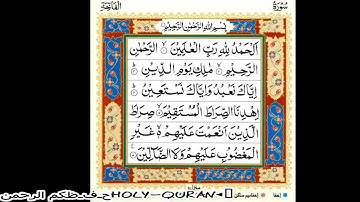 سُورَةُ الْفَاتِحَةِ
بِسْمِ اللهِ الرَّحْمٰنِ الرَّحِيْمِ
اَلْحَمْدُ لِلّٰهِ رَبِّ الْعٰلَمِيْنَ ۙ الرَّحْمٰنِ
الرَّحِيْمِ ۙ مٰلِكِ يَوْمِ الدِّيْنِ ۗ
اِيَّاكَ نَعْبُدُ وَاِيَّاكَ نَسْتَعِيْنُ ۗ
اِهْدِنَا الصِّرَاطَ الْمُسْتَقِيْمَ ۙ صِرَاطَ
الَّذِيْنَ اَنْعَمْتَ عَلَيْهِمْ ۙ غَيْرِ
الْمَغْضُوْبِ عَلَيْهِمْ وَلَا الضَّآلِّيْنَ
HOLY-QURAN